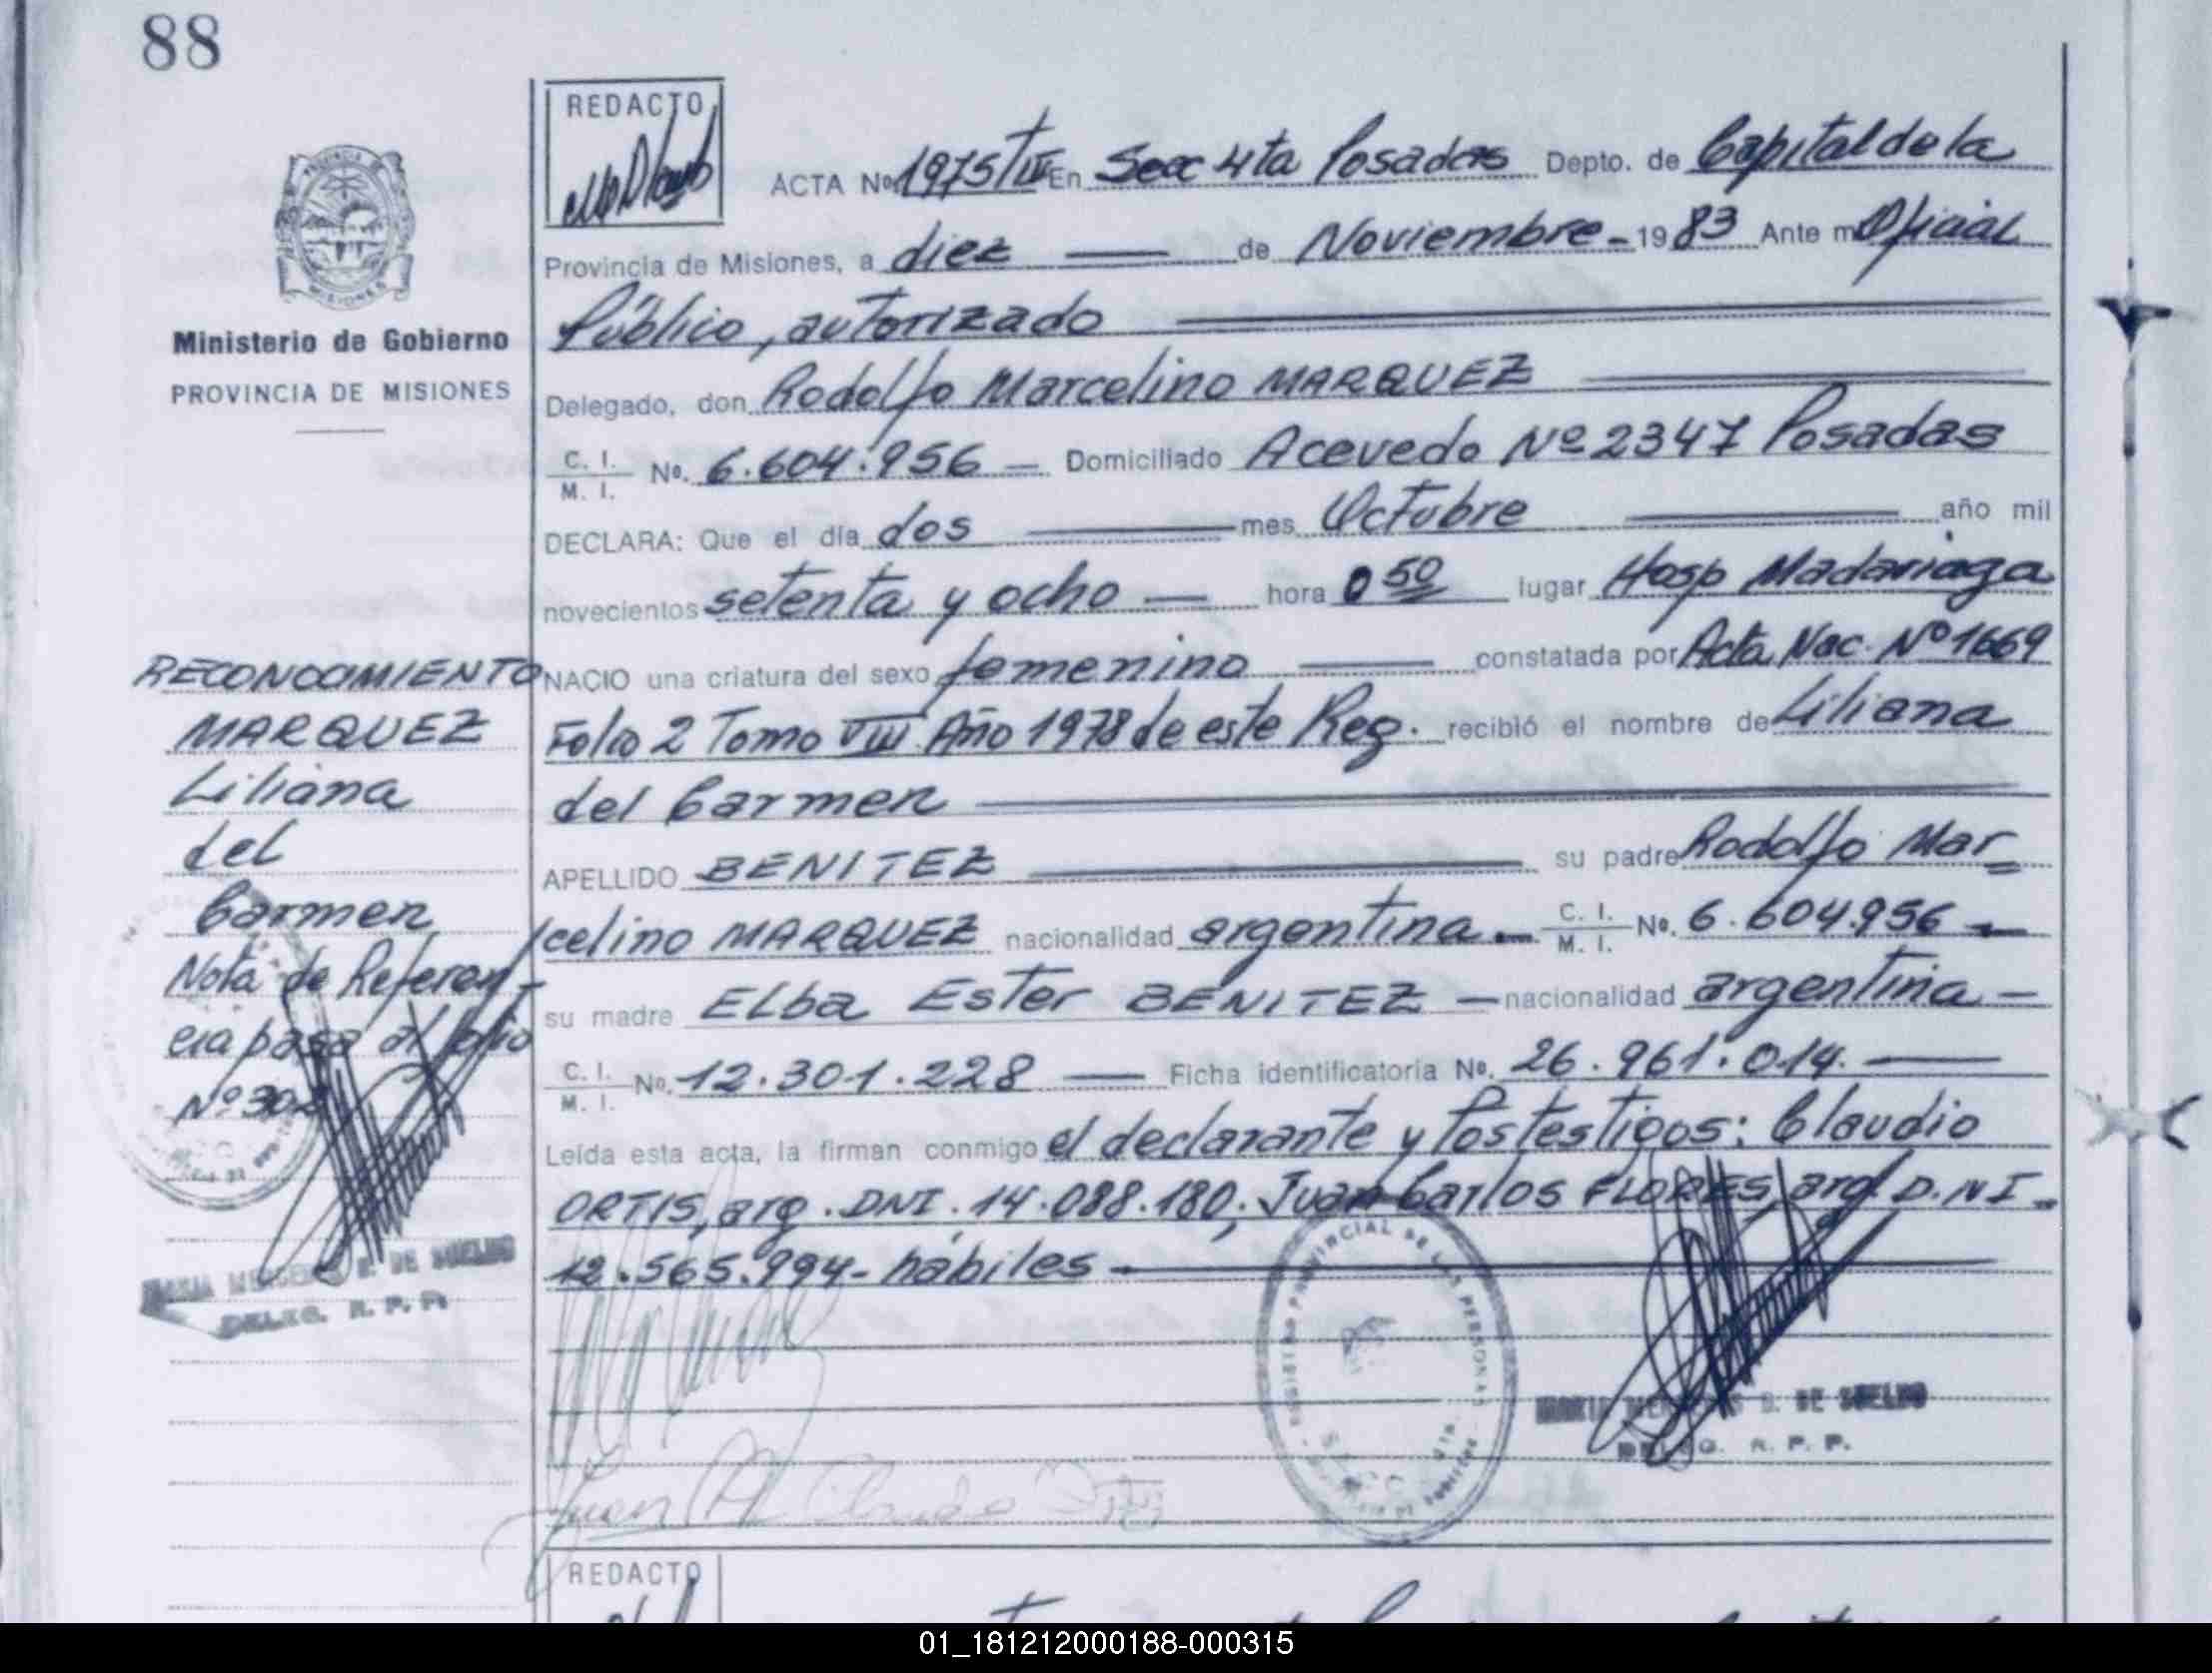 88
REDACTO
ACTA No. 1975/IV En Secc 4ta Posadas Depto. de Capital de la
Provincia de Misiones, a diez de Noviembre - 1983 Ante mi Oficial
Público, autorizado
Delegado, don Rodolfo Marcelino MARQUEZ
C. I.
M. I. No. 6.604.956 — Domiciliado Acevedo Nº 2347 Posadas
DECLARA: Que el día dos mes Octubre año mil
novecientos setenta y ocho — hora 0 50 lugar Hosp Madariaga
NACIO una criatura del sexo femenino constatada por Acta Nac. Nº 1669
Folio 2 Tomo VIII Año 1978 de este Reg. recibió el nombre de Liliana
del Carmen
APELLIDO BENITEZ su padre Rodolfo Mar=
celino MARQUEZ nacionalidad argentina. — C. I.
M. I. No. 6.604.956 —
su madre Elba Ester BENITEZ — nacionalidad argentina —
C. I.
M. I. No. 12.301.228 — Ficha identificatoria No. 26.961.014. —
Leída esta acta, la firman conmigo el declarante y los testigos: Claudio
ORTIS, arg. DNI. 14.088.180; Juan Carlos FLORES, arg. D.N.I.
12.565.994 - hábiles
Ministerio de Gobierno
PROVINCIA DE MISIONES
RECONOCIMIENTO
MARQUEZ
Liliana
del
Carmen
Nota de Referen-
cia pasa al folio
Nº 302
DE SUELDO
DELEG. R. P. P.
REGISTRO PROVINCIAL DE LAS PERSONAS
MARIA D. DE SUELDO
DELEG. R. P. P.
Juan Claudio Ortis
REDACTO
01_181212000188-000315